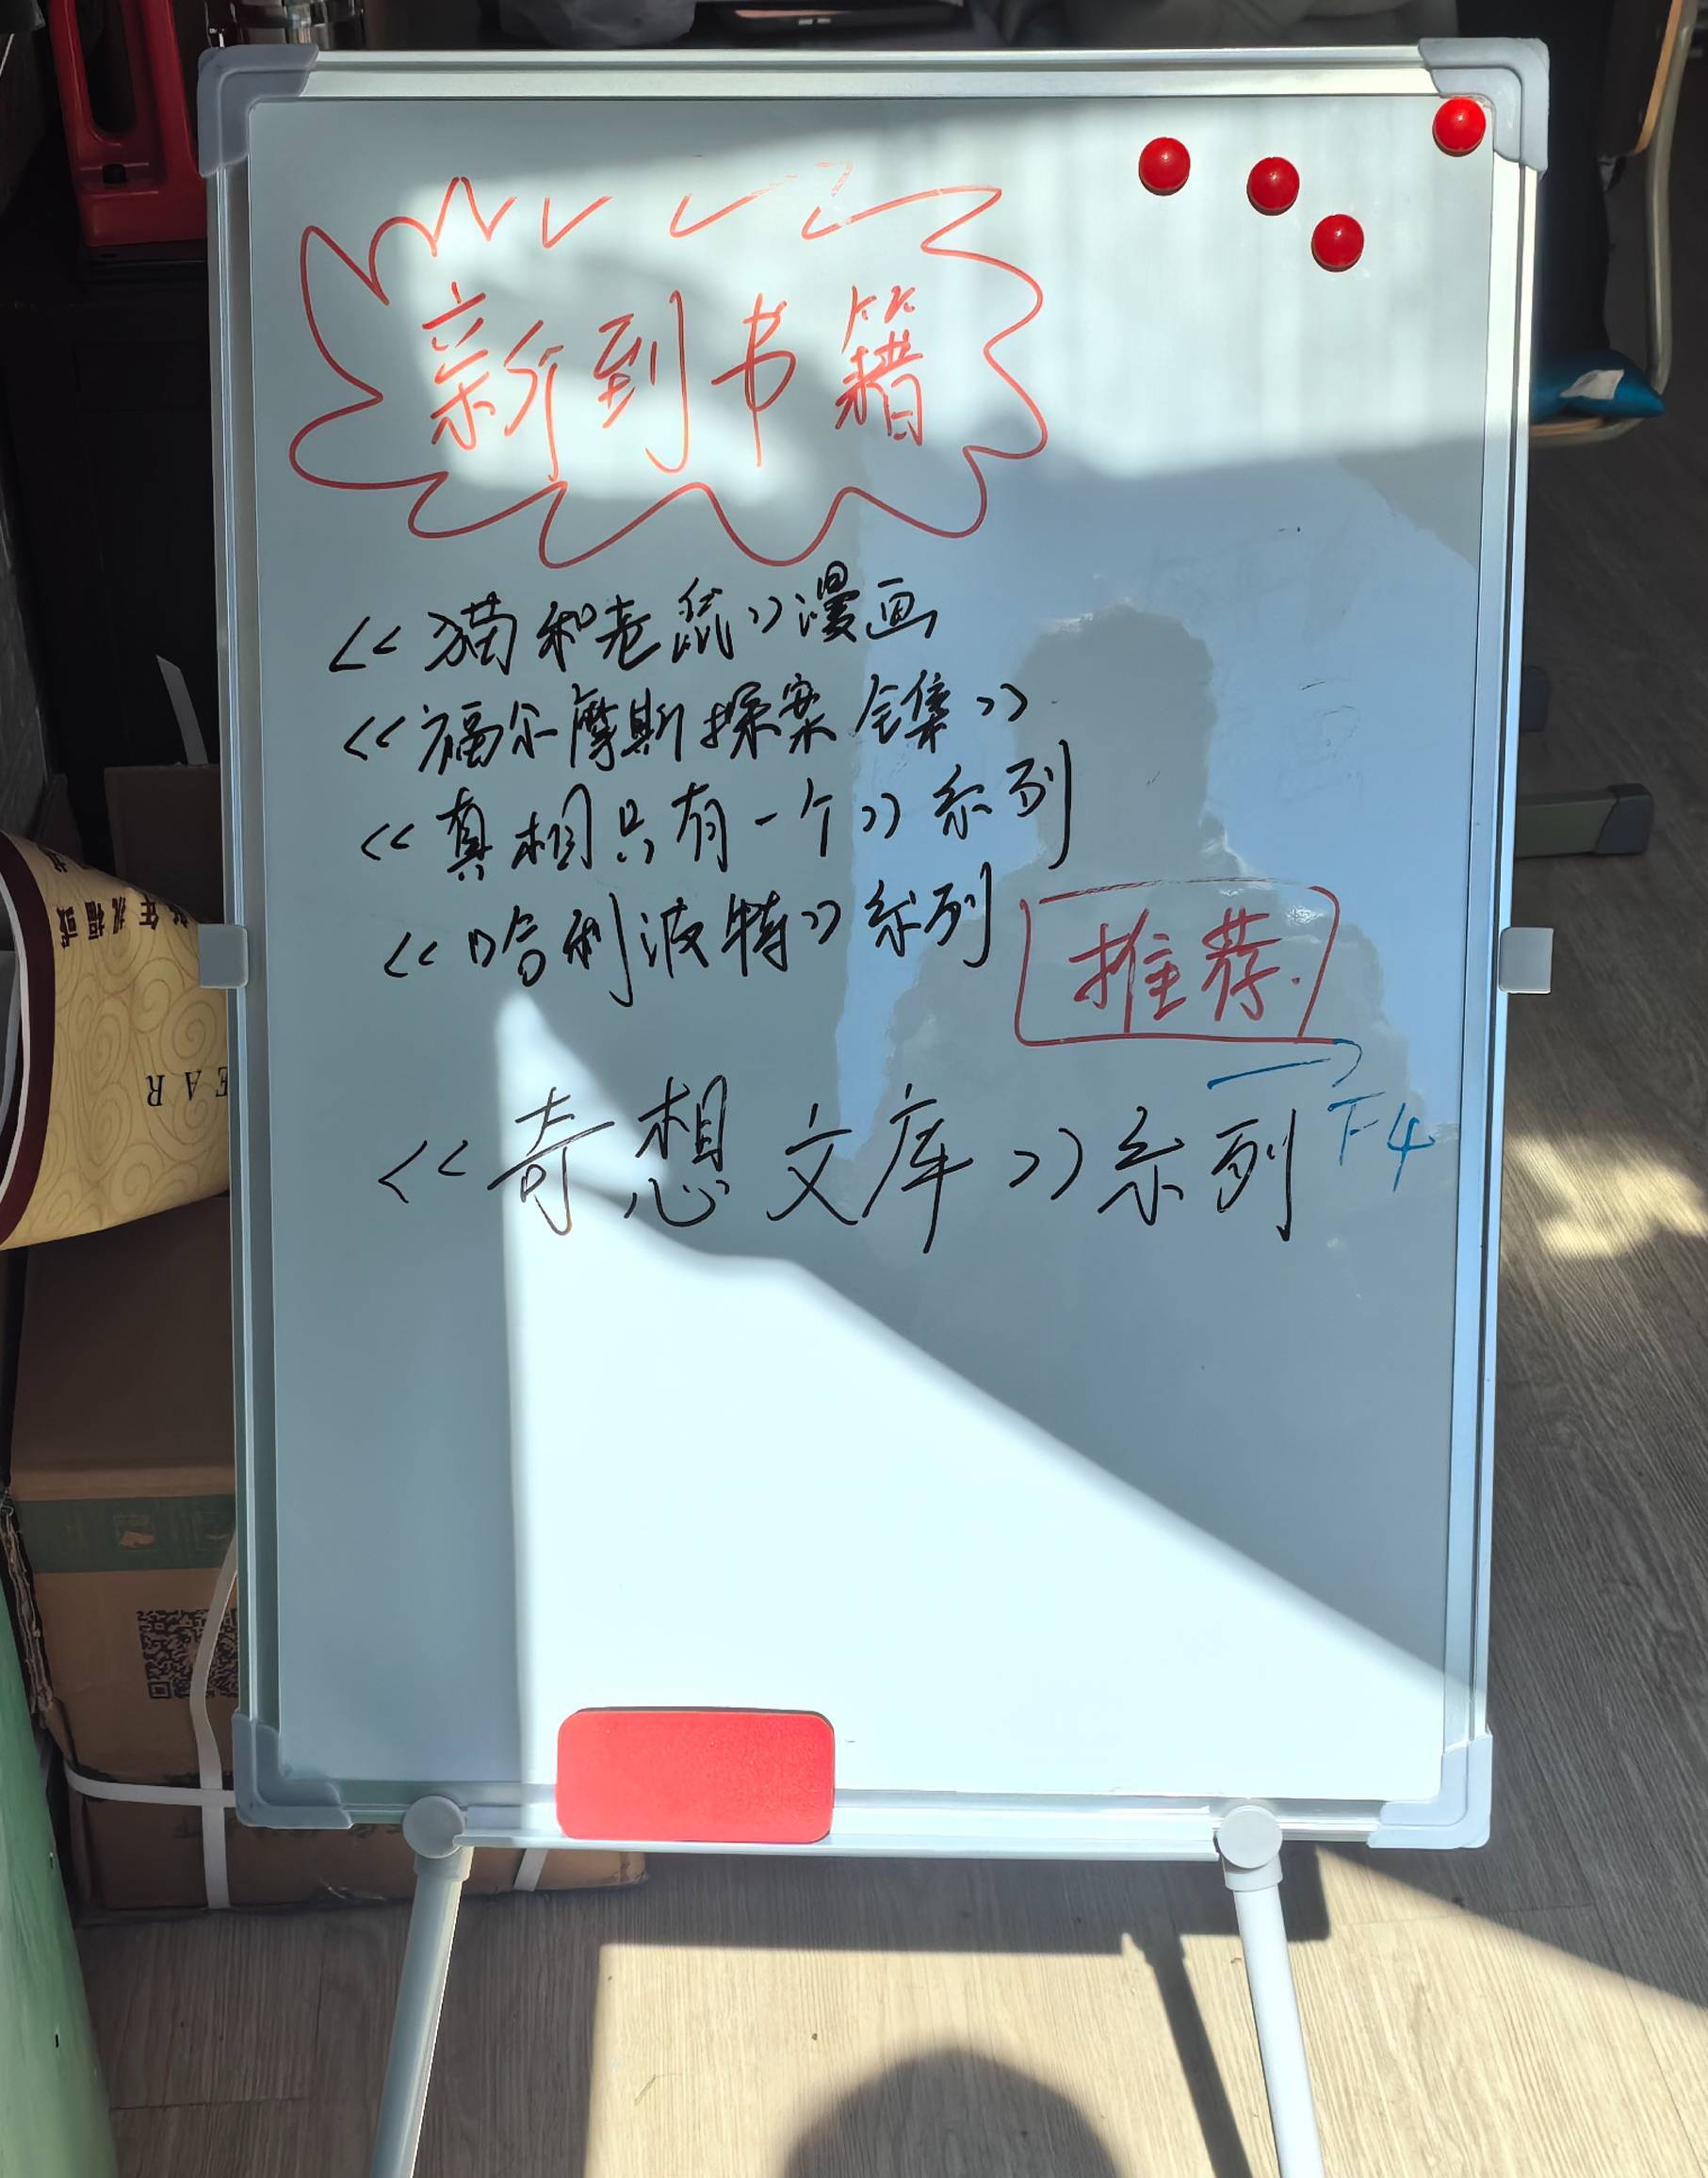 新到书籍
<<猫和老鼠>>漫画
<<福尔摩斯探案全集>>
<<真相只有一个>>系列
<<哈利波特>>系列
推荐.
<<奇想文库>>系列
F4
EAR